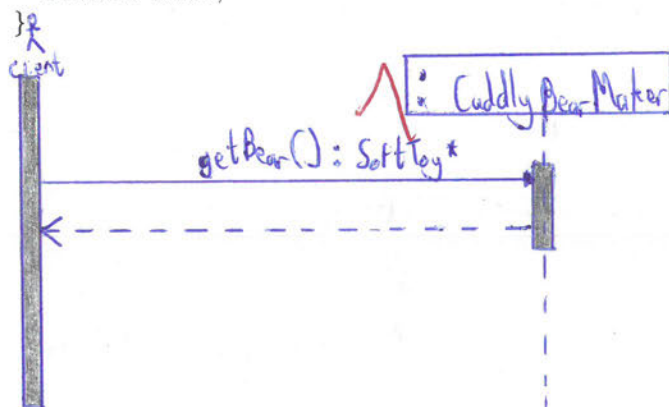 }
client
: Cuddly Bear Maker
getBear() : SoftToy*